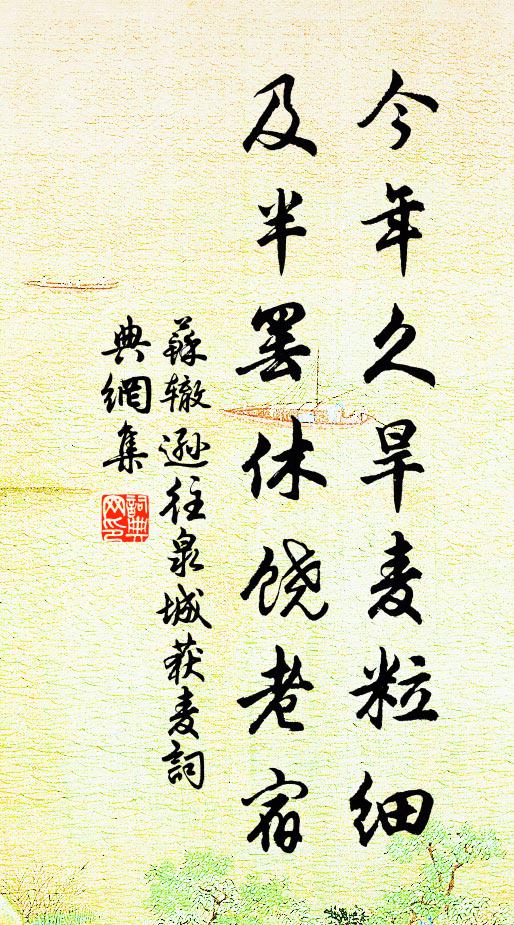 今年久旱麦粒细
及半罢休饶老宿
蘇辙遜往泉城获麦詞
典網集
詞典网印